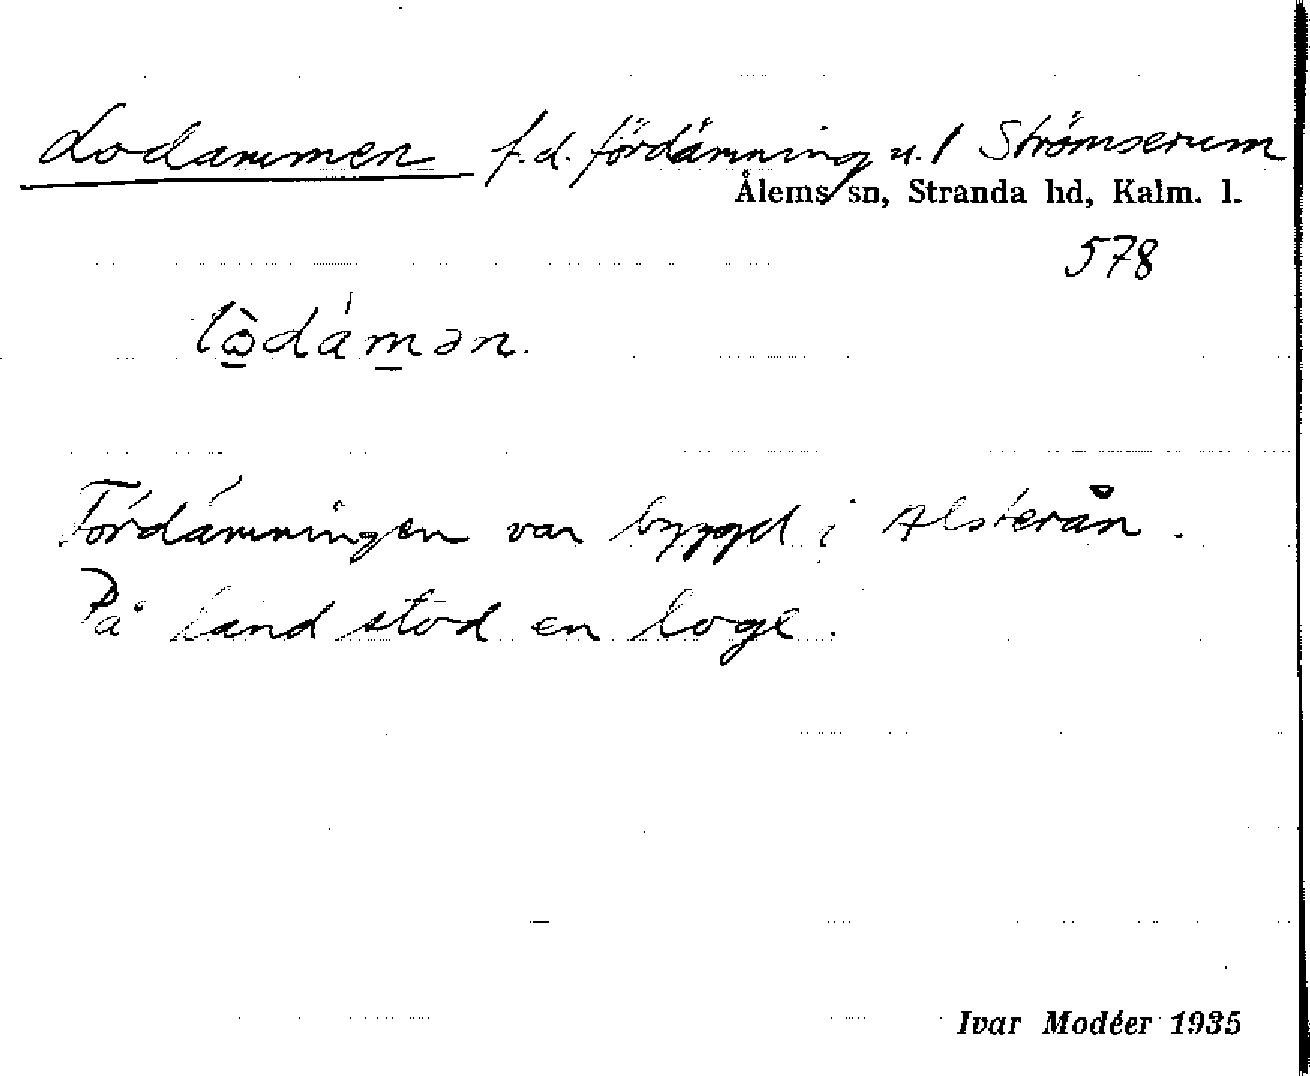 Lodammen f.d. fördämning u. 1 Strömserum
Ålems sn, Stranda hd, Kalm. l.
578
Fördämningen var byggd i Alsterån.
På land stod en loge.
Ivar Modéer 1935